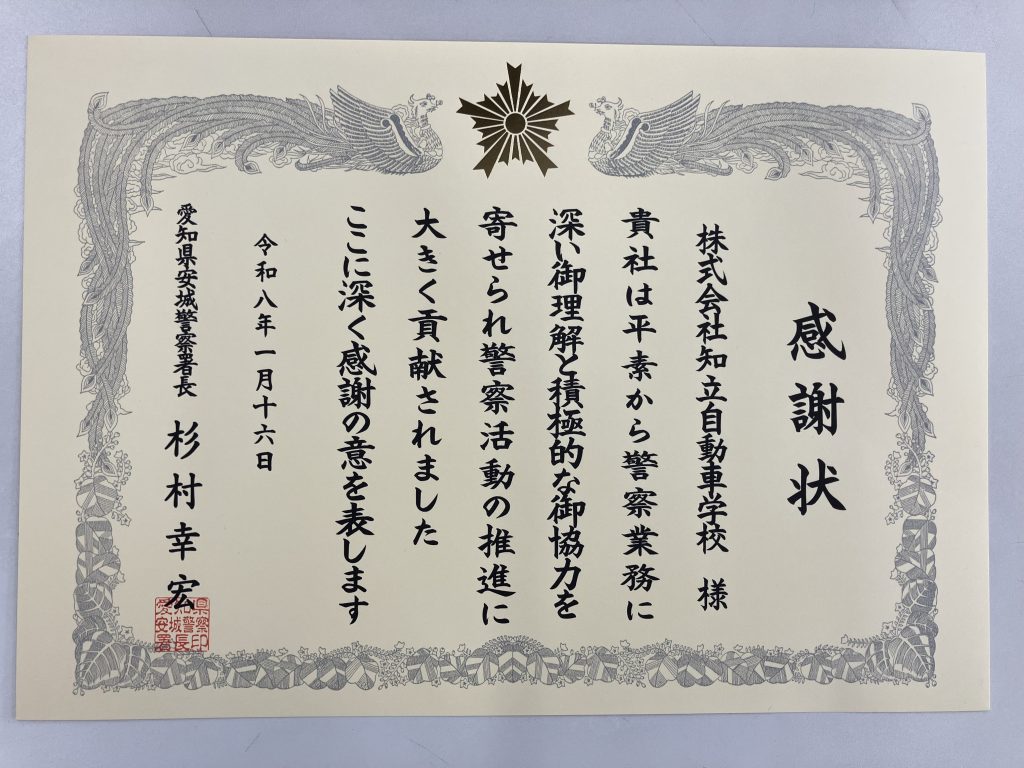 感謝状
株式会社知立自動車学校 様
貴社は平素から警察業務に
深い御理解と積極的な御協力を
寄せられ警察活動の推進に
大きく貢献されました
ここに深く感謝の意を表します
令和八年一月十六日
愛知県安城警察署長 杉村幸宏
愛知県安城警察署長印